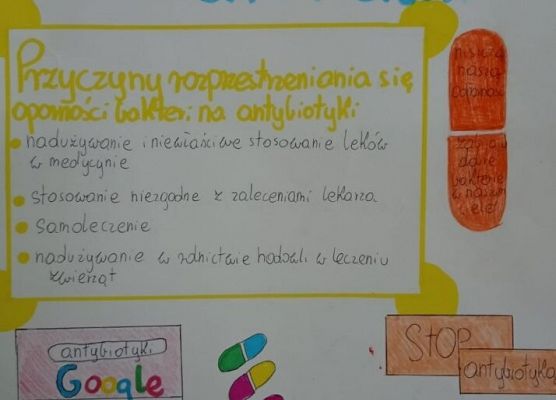 Przyczyny rozprzestrzeniania się
oporności bakteri na antybiotyki
nadużywanie i niewłaściwe stosowanie leków
w medycynie
stosowanie niezgodne z zaleceniami lekarza
samoleczenie
nadużywanie w rolnictwie hodowli w leczeniu
zwierząt
niszczą
naszą
odporność
dobre
bakterie
w naszym
ciele
antybiotyki
Google
STOP
antybiotyką